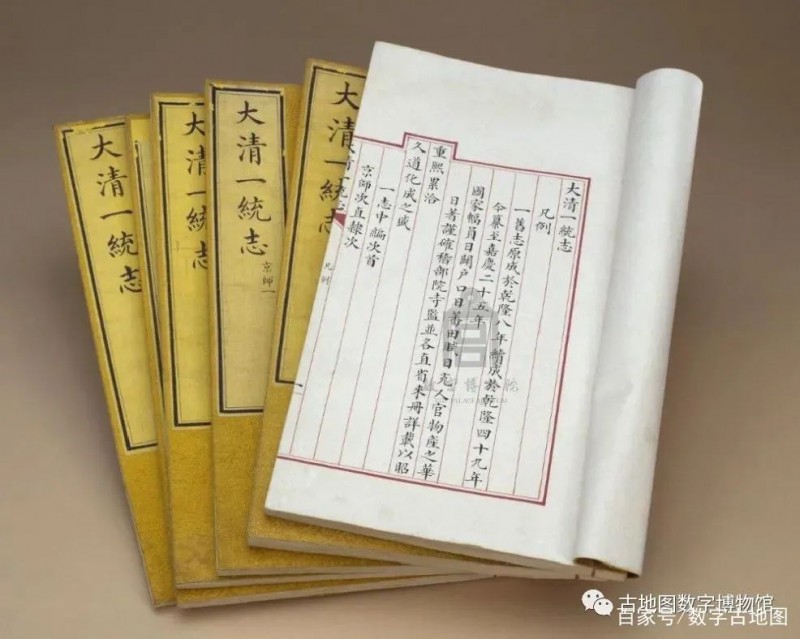 大清一統志
凡例
一舊志原成於乾隆八年續成於乾隆四十九年
今纂至嘉慶二十五年
國家幅員日闢户口日蕃田賦日充人官物產之華
日者謹確稽部院寺監並各直省来册詳載以昭
重熙累洽
久道化成之盛
一志中編次首
京師次直隸次
大清一統志
凡例
大清一統志
京師一
大清一統志
大清一統志
故宮博物院
PALACE MUSEUM
古地图数字博物馆
百家号/数字古地图